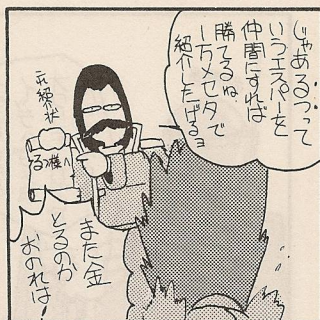 じゃあるつって
いうエスパーを
仲間にすれば
勝てるね、
一万メセタで
紹介したげるヨ
これ紹介状
るつ様へ
また金
とるのか
おのれは!